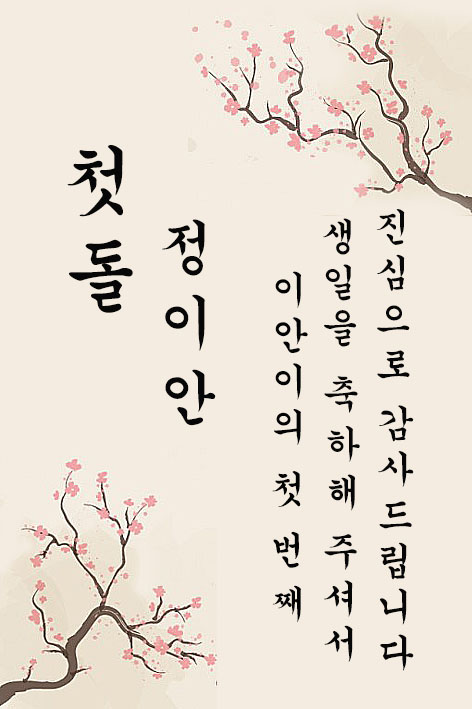 첫돌
정이안
이안이의 첫 번째
생일을 축하해 주셔서
진심으로 감사드립니다